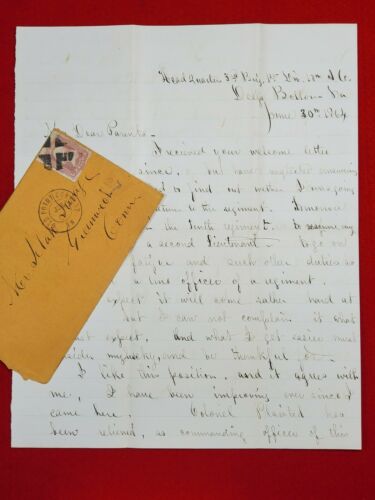 Head Quarters 3rd Brig. 1st Div. 10th A. Co.
Deep Bottom Va
June 30th 1864
My Dear Parents
I recieved your welcome letter
since, but have neglected answering
to find out wether I was going
return to the regiment. Tomorrow
the Tenth regiment, to resume my
a second Lieutenant to go on
fatigue and such other duties as
a line officer of a regiment.
expect it will come rather hard at
but I can not complain it is what
must expect, and what I get easier must
consider my luck, and be thankful for
I like this position, and it agrees with
me, I have been improving ever since I
came here. Colonel Plaisted has
been relieved, as commanding officer of this
Mr
Greenwich
Conn